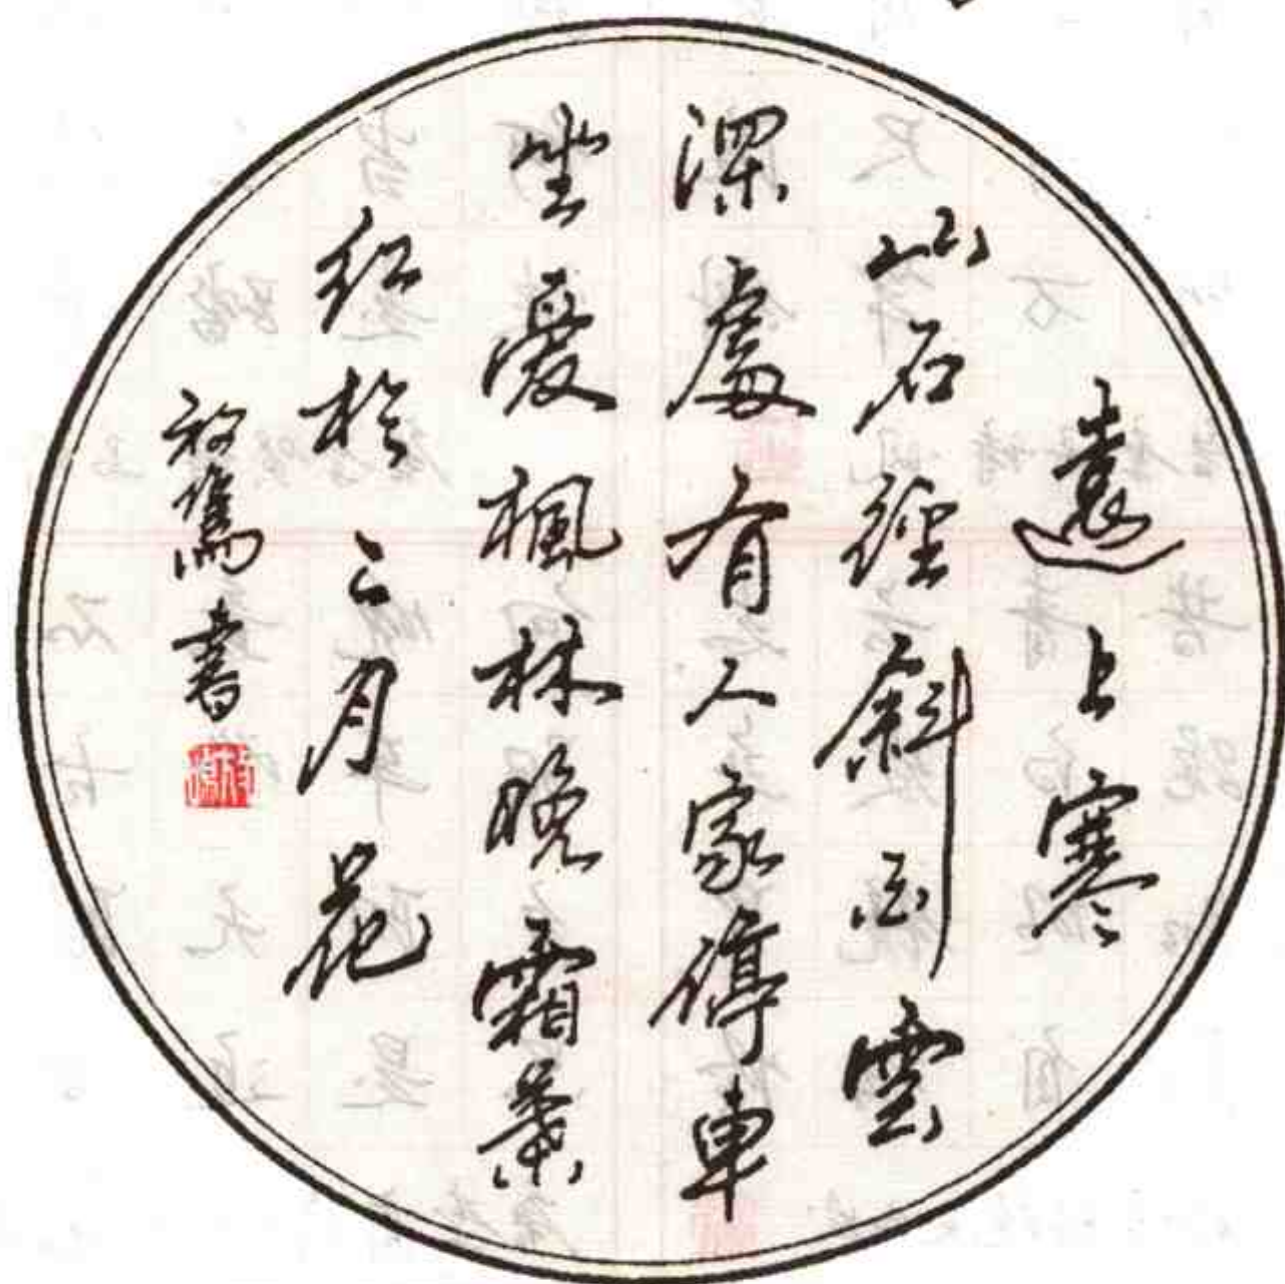 遠上寒
山石徑斜白雲
深處有人家停車
坐愛楓林晚霜葉
紅於二月花
書